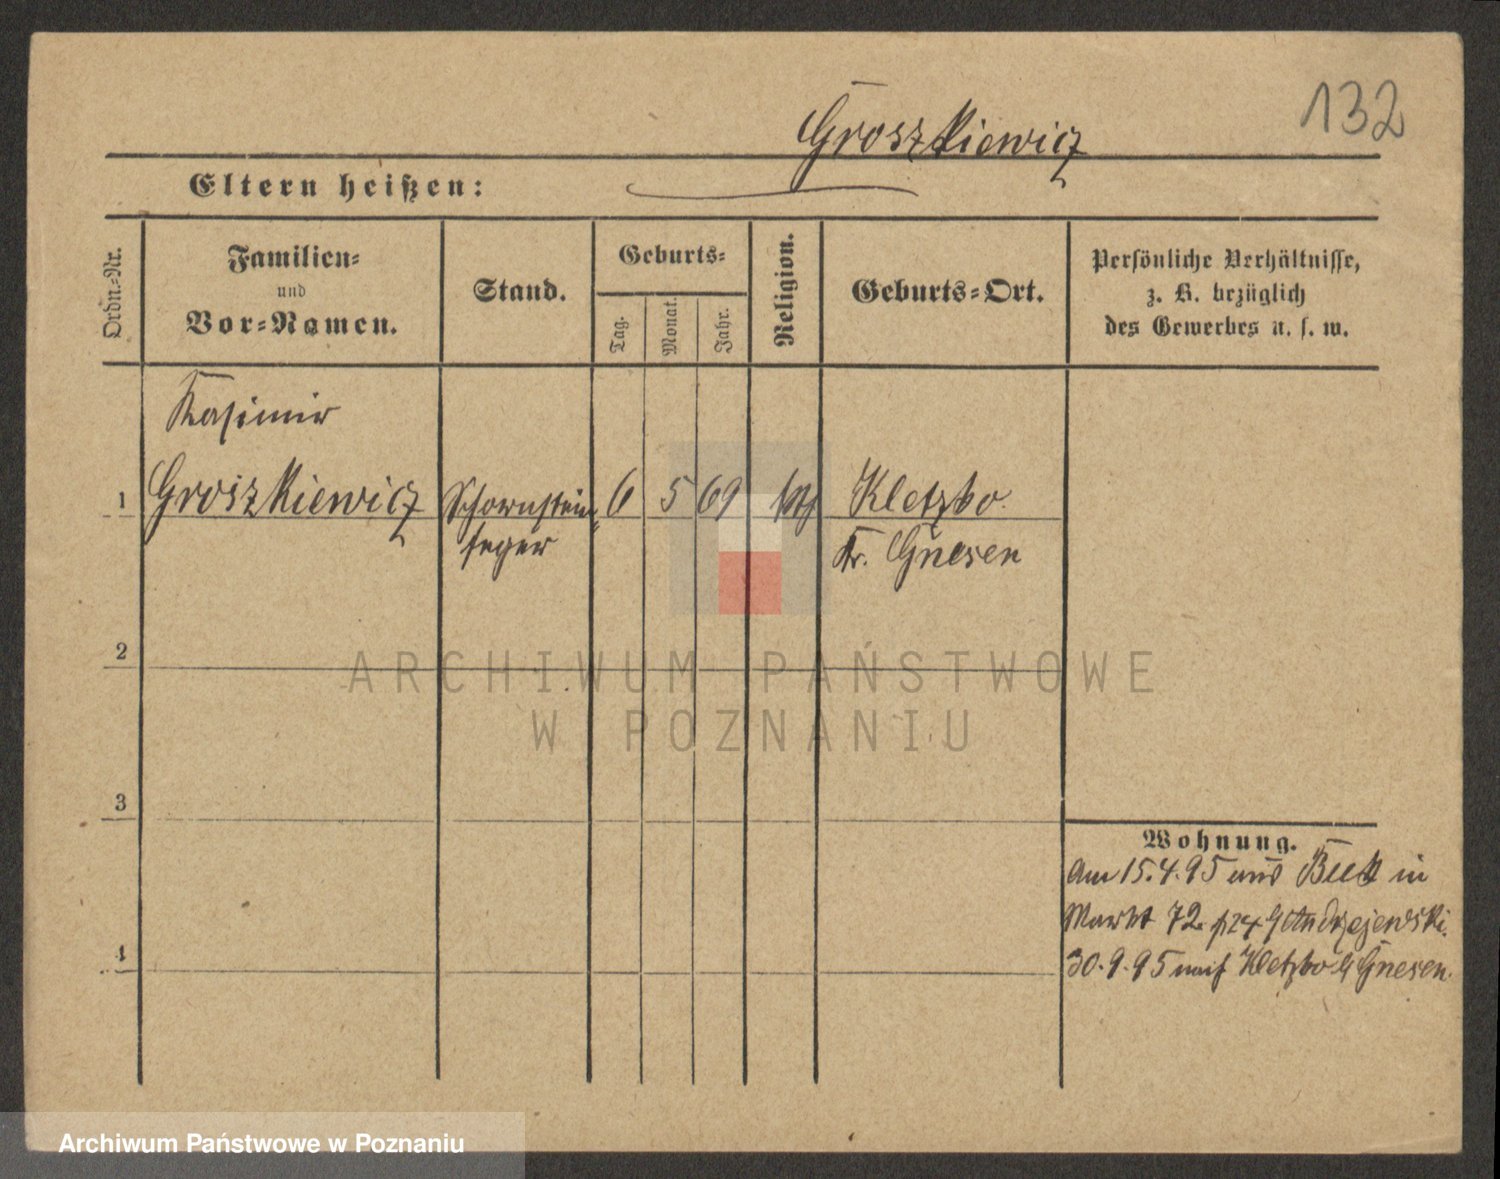 132
Groszkiewicz
Eltern heißen:
Ordn.-Nr.
Familien-
und
Vor-Namen.
Stand.
Geburts-
Tag.
Monat.
Jahr.
Religion.
Geburts-Ort.
Persönliche Verhältnisse,
z. B. bezüglich
des Gewerbes u. s. w.
Kasimir
1 Groszkiewicz Schornstein- 6 5 69 kth Kletzko
feger Kr. Gnesen
2
ARCHIWUM PAŃSTWOWE
W POZNANIU
3
Wohnung.
Am 15.4.95 aus Buk in
Markt 72. Andrzejewski.
4
30.9.95 nach Kletzko Gnesen.
Archiwum Państwowe w Poznaniu